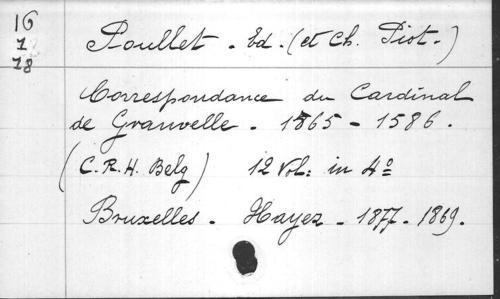 16
1
18
Poullet. Ed. (et Ch. Piot.)
Correspondance du Cardinal
de Granvelle. 1565 - 1586.
(C.R.H. Belg) 12 Vol: in 4º
Bruxelles. Hayez - 1877-1869.